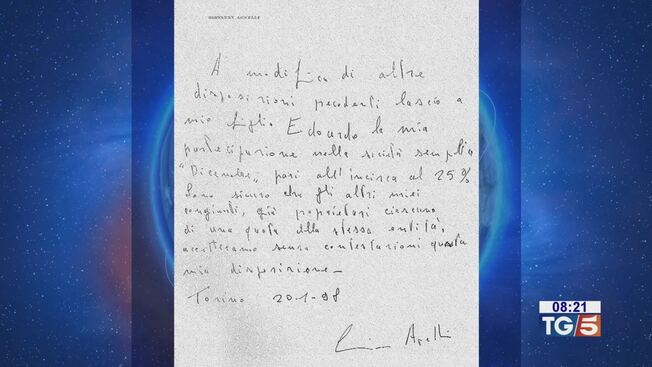 GIOVANNI AGNELLI
A modifica di altre
disposizioni precedenti lascio a
mio figlio Edoardo la mia
partecipazione nella società semplice
"Dicembre", pari all'incirca al 25%
Sono sicuro che gli altri miei
congiunti, già proprietari ciascuno
di una quota della stessa entità,
accetteranno senza contestazioni questa
mia disposizione -
Torino 20-1-98
Agnelli
08:21
TG5